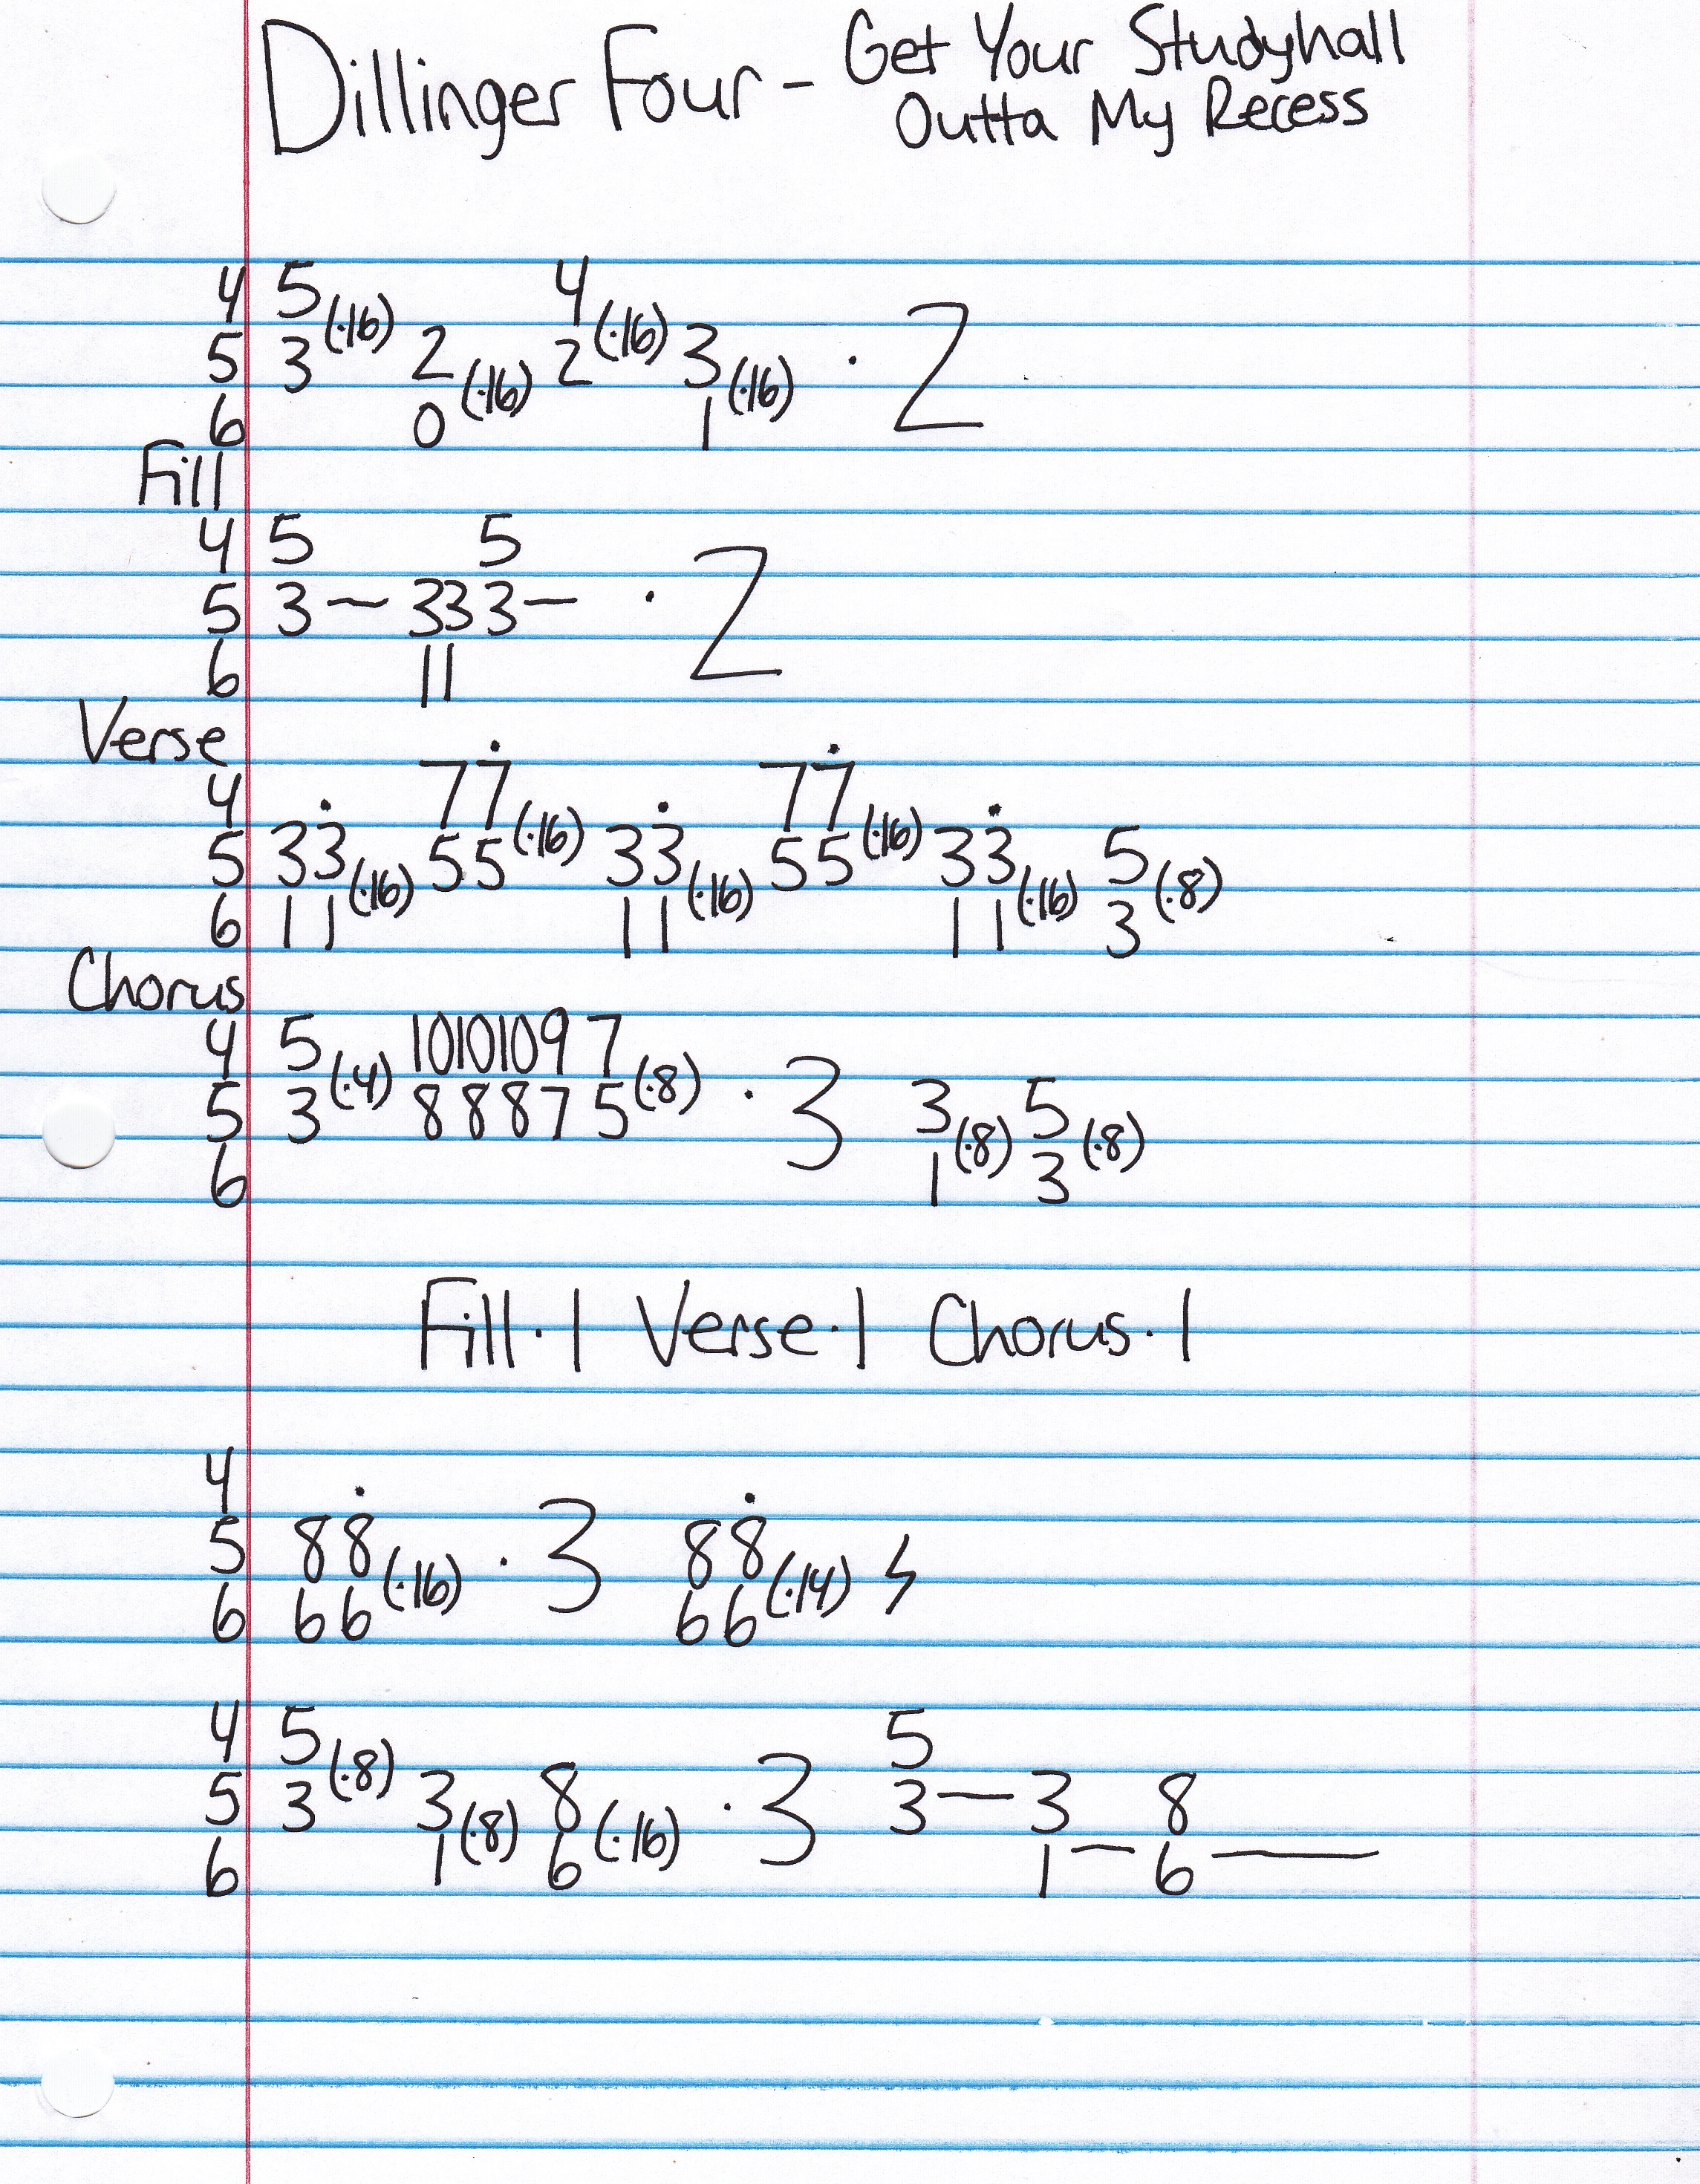 Dillinger Four - Get Your Studyhall
Outta My Recess
4 5 4
5 3 (·16) 2 2 (·16) 3 · 2
6 0 (·16) 1 (·16)
Fill
4 5 5
5 3 — 333 — · 2
6 11
Verse
4 77̇ 77̇
5 33̇ 55 (·16) 33̇ 55 (·16) 33̇ 5
6 11 (·16) 11 (·16) 11 (·16) 3 (·8)
Chorus
4 5 10 10 10 9 7
5 3 (·4) 8 8 8 7 5 (·8) · 3 3 5
6 1 (·8) 3 (·8)
Fill · 1 Verse · 1 Chorus · 1
4
5 88̇ · 3 88̇
6 66 (·16) 66 (·14)
4 5 5
5 3 (·8) 3 8 · 3 3 — 3 8
6 1 (·8) 6 (·16) 1 — 6 —